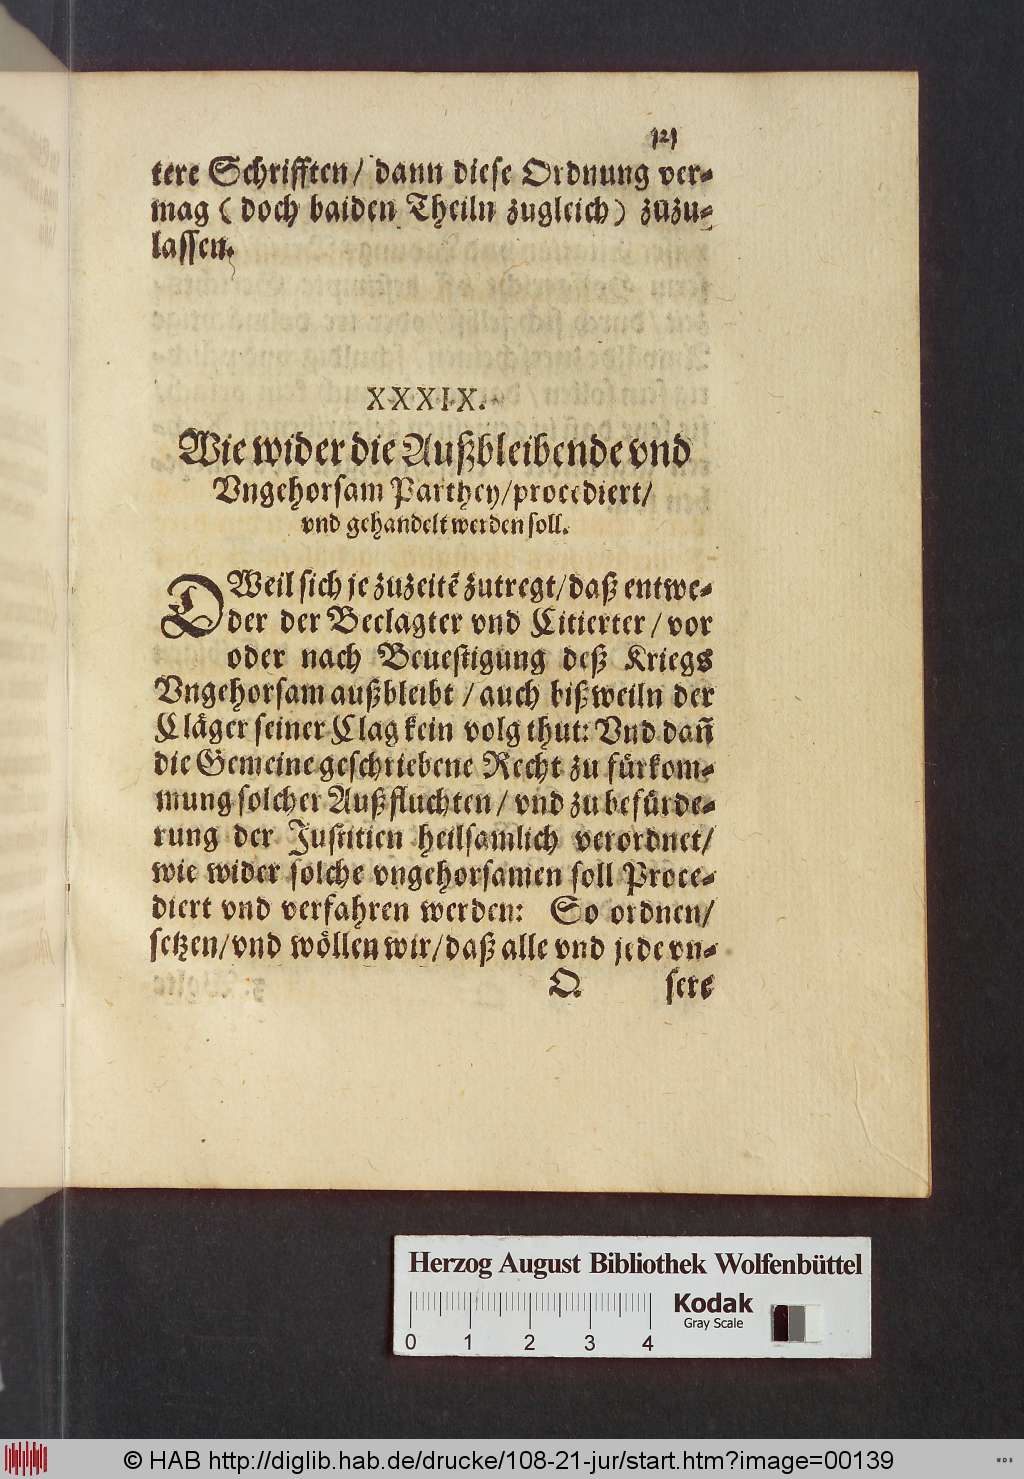 121
tere Schrifften/ dann diese Ordnung ver-
mag (doch baiden Theiln zugleich) zuzu-
lassen.
XXXIX.
Wie wider die Außbleibende vnd
Vngehorsam Parthey/procediert/
vnd gehandelt werden soll.
DWeil sich je zuzeitē zutregt/daß entwe-
der der Beclagter vnd Citierter/vor
oder nach Beuestigung deß Kriegs
Vngehorsam außbleibt/auch bißweiln der
Cläger seiner Clag kein volg thut: Vnd dañ
die Gemeine geschriebene Recht zu fürkom-
mung solcher Außfluchten/vnd zu befürde-
rung der Justitien heilsamlich verordnet/
wie wider solche vngehorsamen soll Proce-
diert vnd verfahren werden: So ordnen/
setzen/vnd wöllen wir/daß alle vnd jede vn-
Q sere
Herzog August Bibliothek Wolfenbüttel
Kodak
Gray Scale
0 1 2 3 4
© HAB http://diglib.hab.de/drucke/108-21-jur/start.htm?image=00139